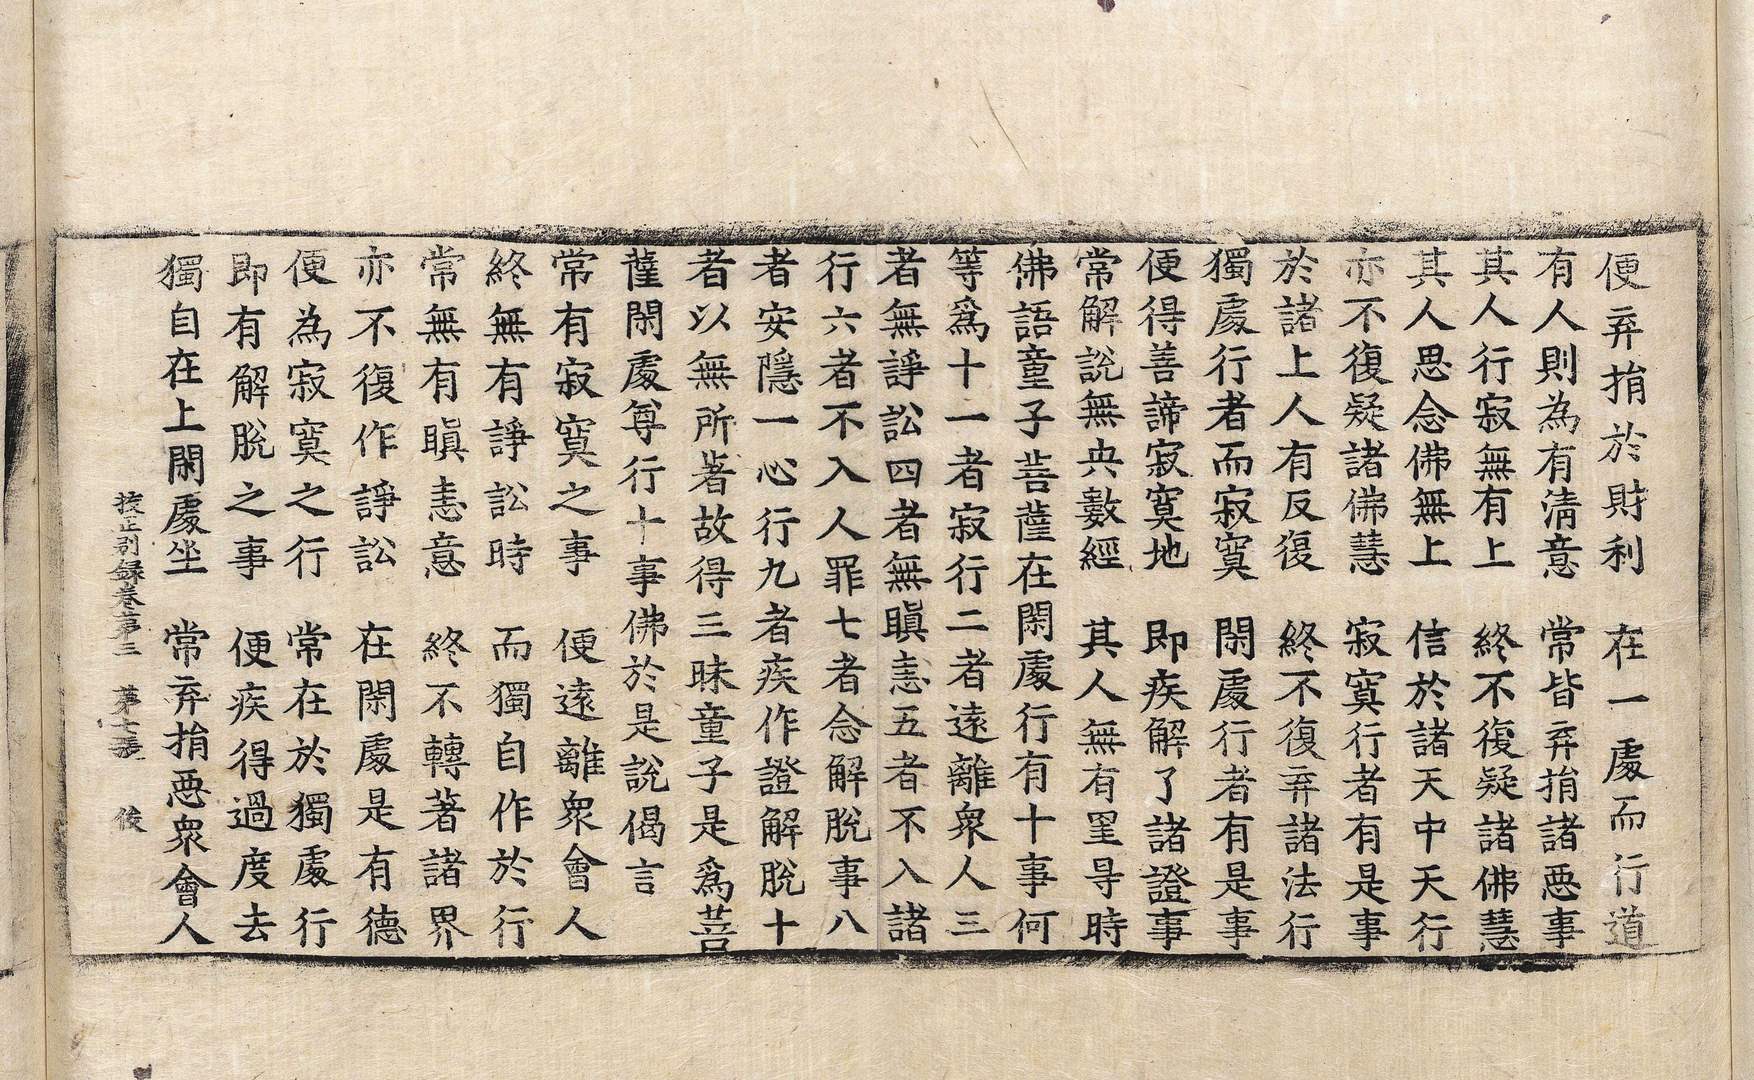 便弃捐於財利　在一處而行道
有人則為有淸意　常皆弃捐諸惡事
其人行寂無有上　終不復疑諸佛慧
其人思念佛無上　信於諸天中天行
亦不復疑諸佛慧　寂寞行者有是事
於諸上人有反復　終不復弃諸法行
獨處行者而寂寞　閑處行者有是事
便得善諦寂寞地　即疾解了諸證事
常解說無央數經　其人無有罣㝵時
佛語童子菩薩在閑處行有十事何
等爲十一者寂行二者遠離衆人三
者無諍訟四者無瞋恚五者不入諸
行六者不入人罪七者念解脫事八
者安隱一心行九者疾作證解脫十
者以無所著故得三昧童子是爲菩
薩閑處尊行十事佛於是說偈言
常有寂寞之事　便遠離衆會人
終無有諍訟時　而獨自作於行
常無有瞋恚意　終不轉著諸界
亦不復作諍訟　在閑處是有德
便為寂寞之行　常在於獨處行
即有解脫之事　便疾得過度去
獨自在上閑處坐　常弃捐惡衆會人
挍正別録卷第三　第七張　俊